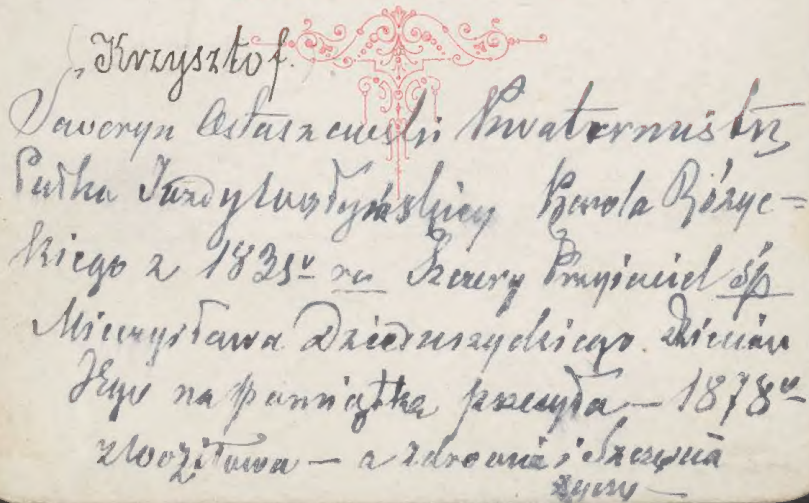 Krzysztof.
Seweryn Ostaszewski Kwatermistrz
Pułku Jazdy Wołyńskiey Karola Różyc=
kiego z 1831º ru Szczery Przyiaciel śp
Mieczysława Dzieduszyckiego. Dzieciom
Jego na pamiątkę posyła – 1878º
– a zdrowia i Szczęścia
życzy –